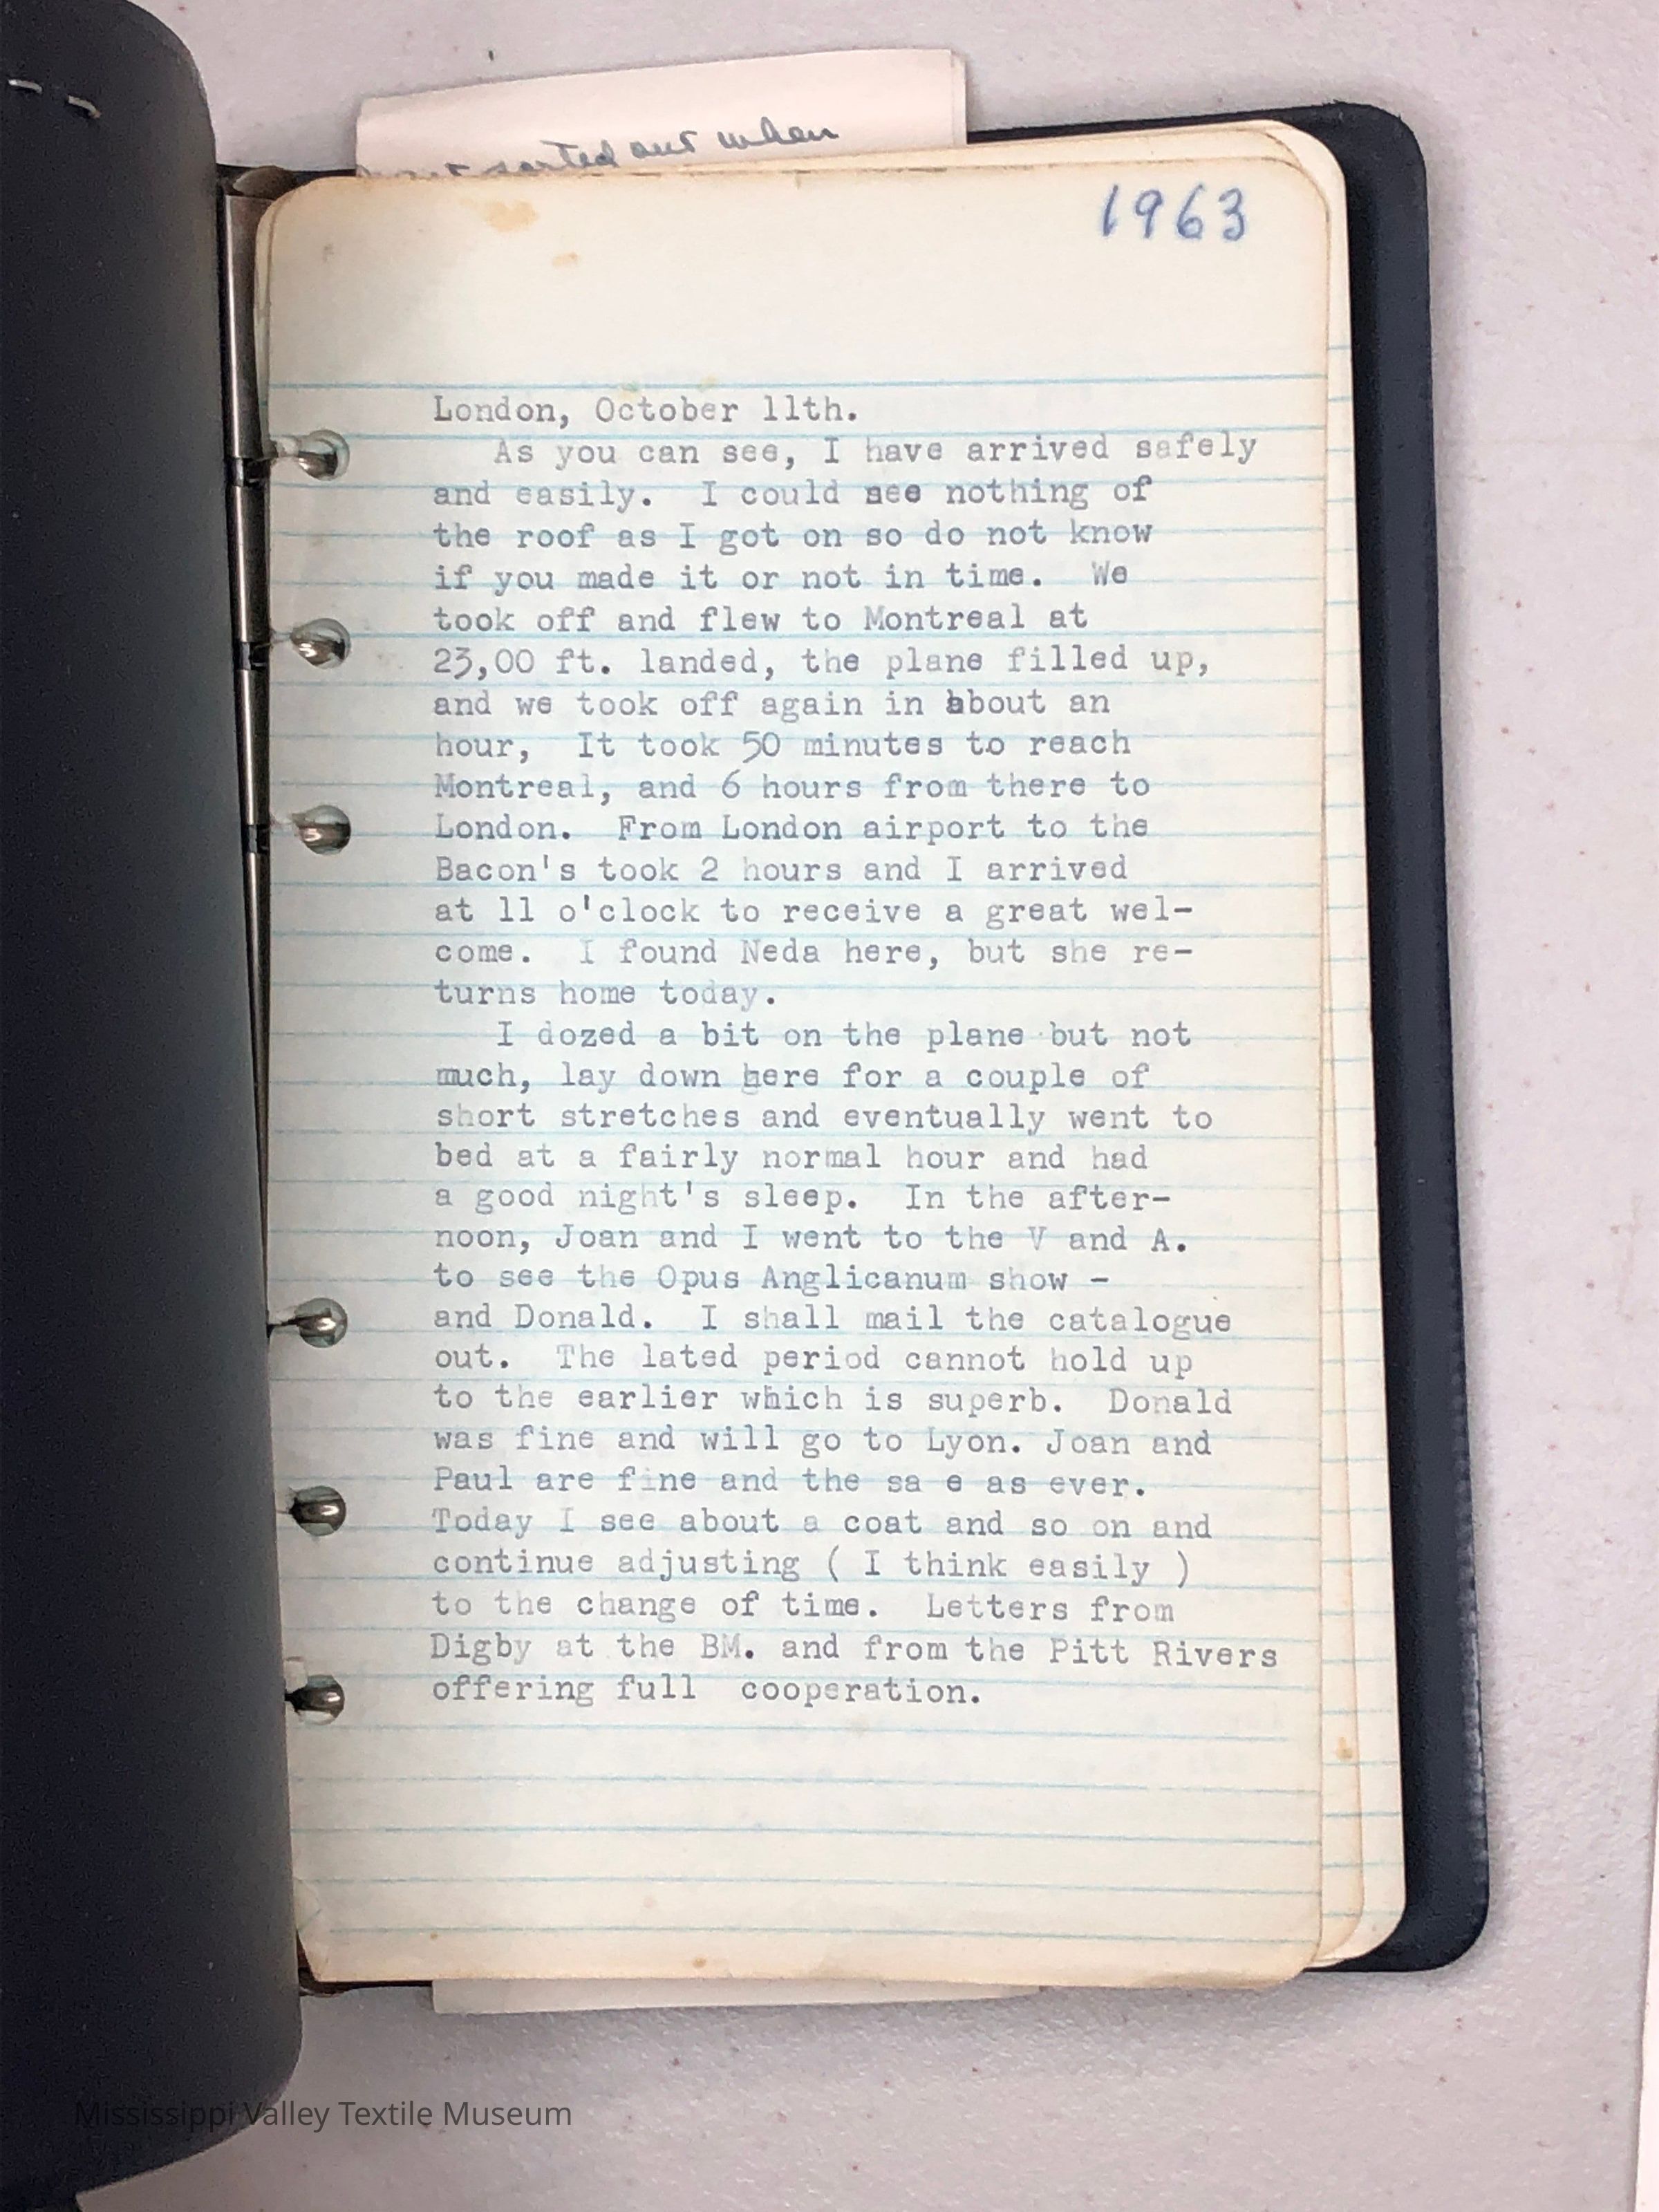 sorted out when
1963
London, October 11th.
As you can see, I have arrived safely
and easily.  I could see nothing of
the roof as I got on so do not know
if you made it or not in time.  We
took off and flew to Montreal at
23,00 ft. landed, the plane filled up,
and we took off again in about an
hour,  It took 50 minutes to reach
Montreal, and 6 hours from there to
London.  From London airport to the
Bacon's took 2 hours and I arrived
at 11 o'clock to receive a great wel-
come.  I found Neda here, but she re-
turns home today.
I dozed a bit on the plane but not
much, lay down here for a couple of
short stretches and eventually went to
bed at a fairly normal hour and had
a good night's sleep.  In the after-
noon, Joan and I went to the V and A.
to see the Opus Anglicanum show -
and Donald.  I shall mail the catalogue
out.  The lated period cannot hold up
to the earlier which is superb.  Donald
was fine and will go to Lyon. Joan and
Paul are fine and the sa e as ever.
Today I see about a coat and so on and
continue adjusting ( I think easily )
to the change of time.  Letters from
Digby at the BM. and from the Pitt Rivers
offering full  cooperation.
Mississippi Valley Textile Museum